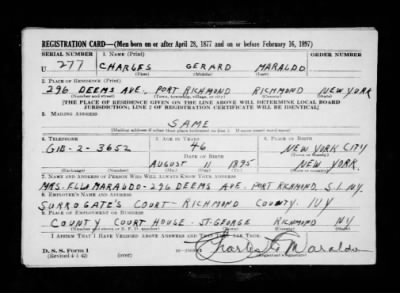 REGISTRATION CARD—(Men born on or after April 28, 1877 and on or before February 16, 1897)
SERIAL NUMBER 1. NAME (Print) ORDER NUMBER
U 277 CHARLES GERARD MARALDO
(First) (Middle) (Last)
2. PLACE OF RESIDENCE (Print)
296 DEEMS AVE. PORT RICHMOND RICHMOND NEW YORK
(Number and street) (Town, township, village, or city) (County) (State)
[THE PLACE OF RESIDENCE GIVEN ON THE LINE ABOVE WILL DETERMINE LOCAL BOARD
JURISDICTION; LINE 2 OF REGISTRATION CERTIFICATE WILL BE IDENTICAL]
3. MAILING ADDRESS
SAME
(Mailing address if other than place indicated on line 2. If same insert word same)
4. TELEPHONE 5. AGE IN YEARS 6. PLACE OF BIRTH
GIB-2-3652 46 NEW YORK CITY
DATE OF BIRTH (Town or county)
AUGUST 11 1895 NEW YORK.
(Mo.) (Day) (Yr.) (State or country)
7. NAME AND ADDRESS OF PERSON WHO WILL ALWAYS KNOW YOUR ADDRESS
MRS. ELLA MARALDO-296 DEEMS AVE. PORT RICHMOND, S.I. NY.
8. EMPLOYER'S NAME AND ADDRESS
SURROGATE'S COURT-RICHMOND COUNTY. NY
9. PLACE OF EMPLOYMENT OR BUSINESS
COUNTY COURT HOUSE - ST. GEORGE RICHMOND NY
(Number and street or R. F. D. number) (Town) (County) (State)
I AFFIRM THAT I HAVE VERIFIED ABOVE ANSWERS AND THAT THEY ARE TRUE.
D. S. S. Form 1
(Revised 4-1-42) (over) Charles G Maraldo
(Registrant's signature)